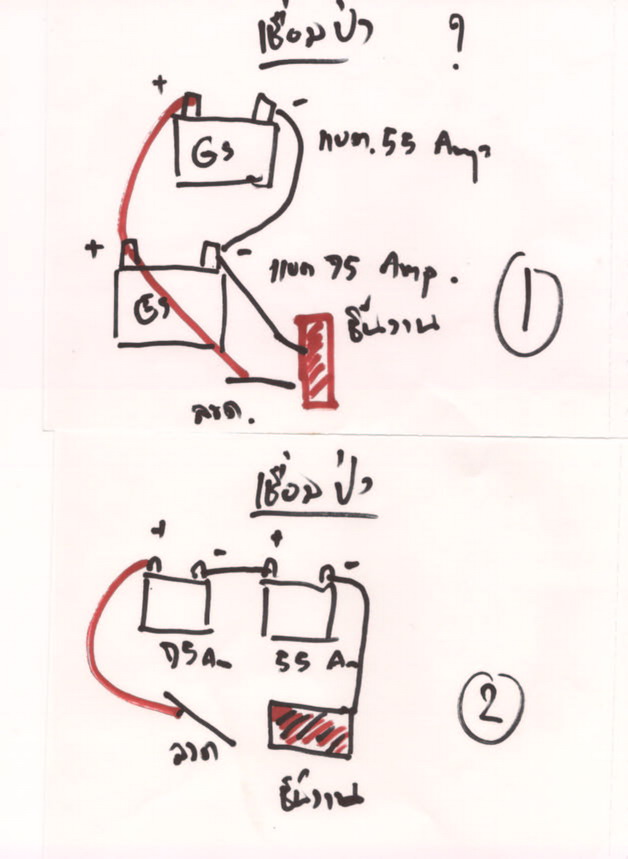 เชื่อมป่า ?
+ -
GS
แบต. 55 Amp
+ -
GS
แบต 75 Amp.
ชิ้นงาน
ลวด.
1
เชื่อมป่า
+ - + -
75 Am 55 Am
ลวด
ชิ้นงาน
2